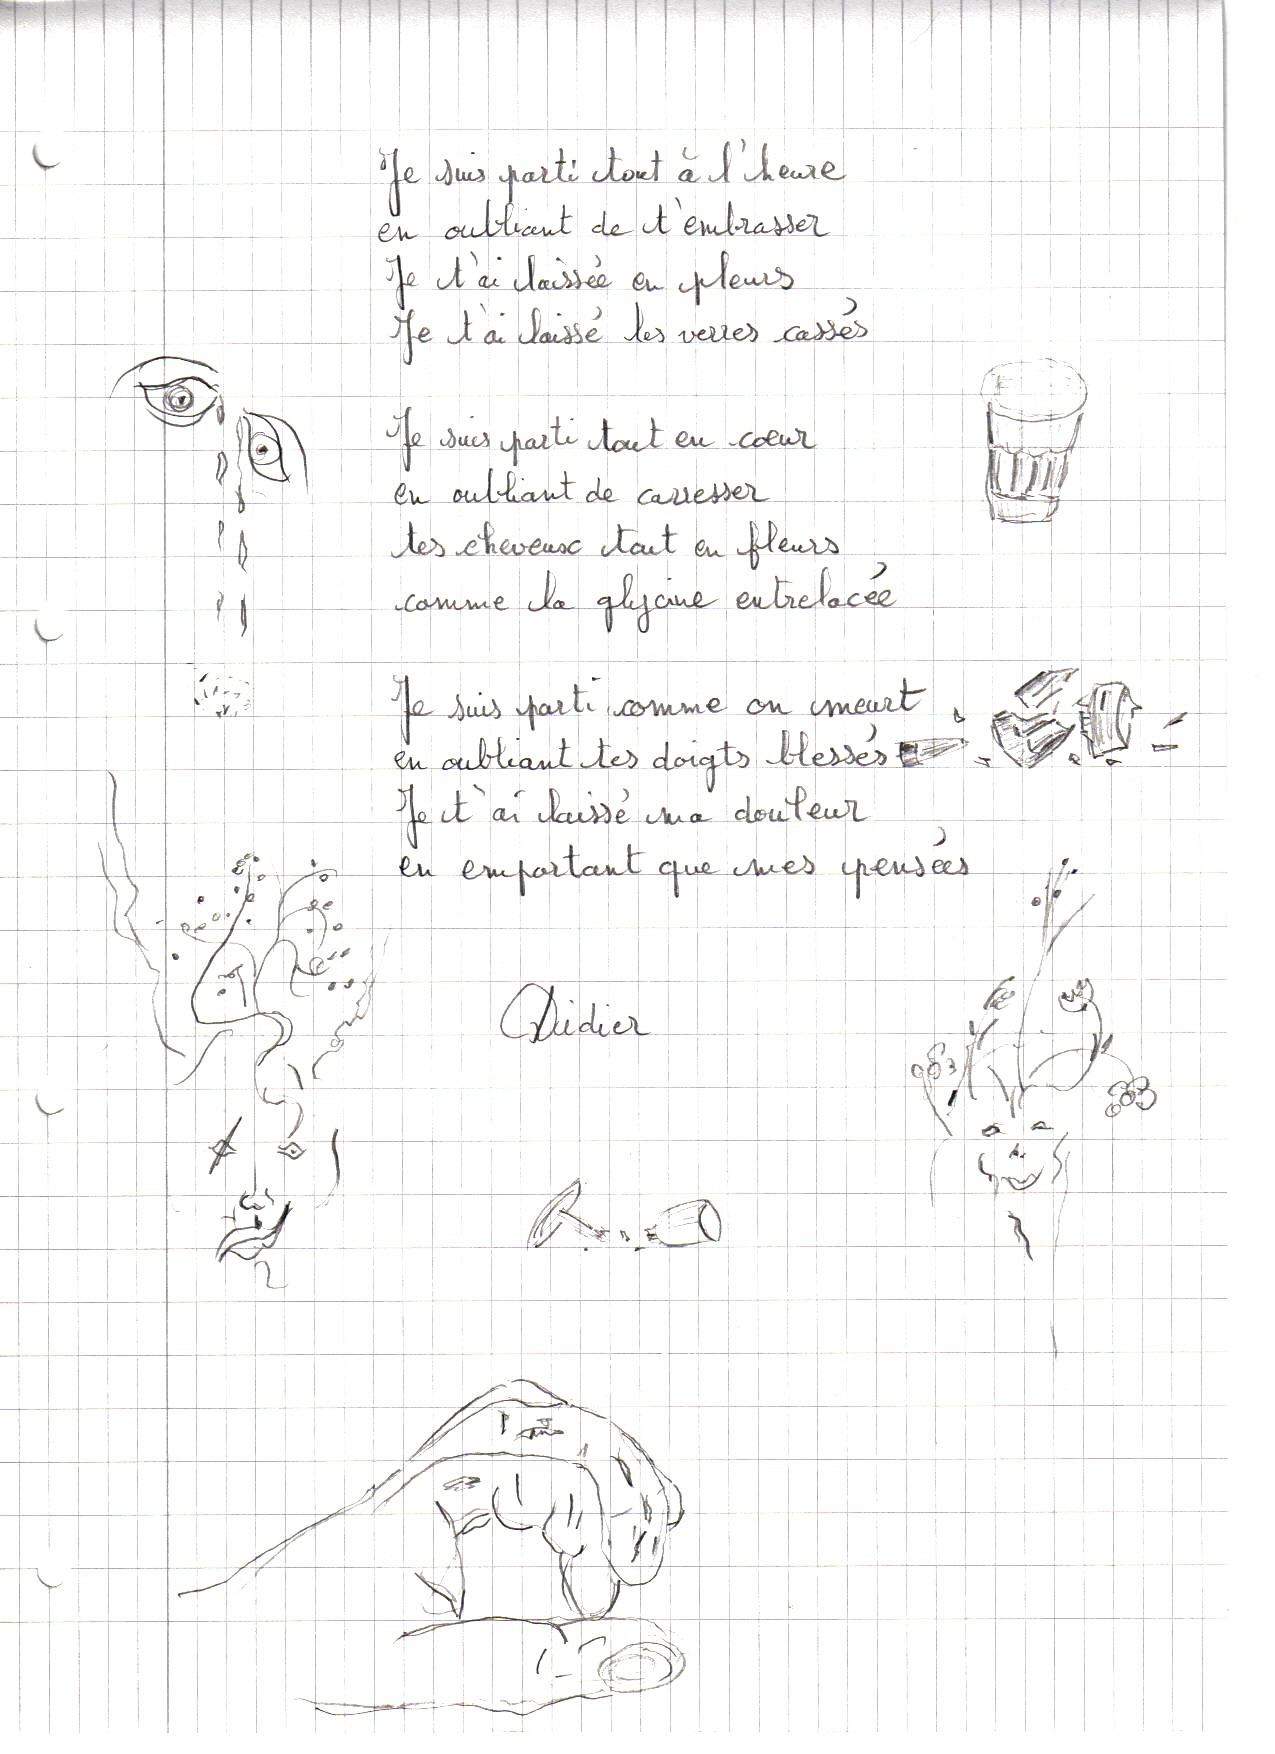 Je suis parti tout à l'heure
en oubliant de t'embrasser
Je t'ai laissée en pleurs
Je t'ai laissé les verres cassés
Je suis parti tout en cœur
en oubliant de carresser
tes cheveux tout en fleurs
comme la glycine entrelacée
Je suis parti comme on meurt
en oubliant tes doigts blessés
Je t'ai laissé ma douleur
en emportant que mes pensées
Didier